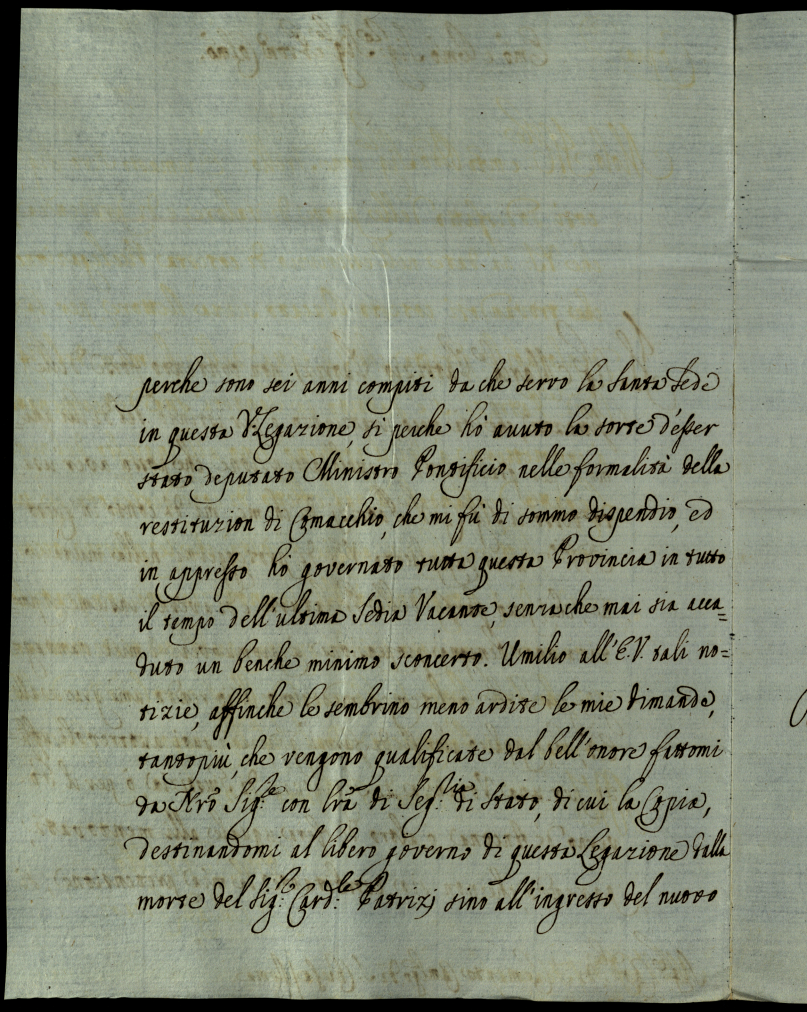 perche sono sei anni compiti da che servo la Santa Sede
in questa V. Legazione, si perche hò auuto la sorte d'esser
stato deputato Ministro Pontificio nelle formalità della
restituzion di Comacchio, che mi fù di sommo dispendio, ed
in appresso hò governato tutta questa Provincia in tutto
il tempo dell'ultima Sedia Vacante, senza che mai sia acca=
duto un benche minimo sconcerto. Umilio all'E.V. tali no=
tizie, affinche le sembrino meno ardite le mie dimande,
tantopiù, che vengono qualificate dal bell'onore fattomi
da Nrõ Sig.re con lrã di Seg.ria di Stato, di cui la Copia,
destinandomi al libero governo di questa Legazione dalla
morte del Sig.r Card.le Patrizj sino all'ingresso del nuovo